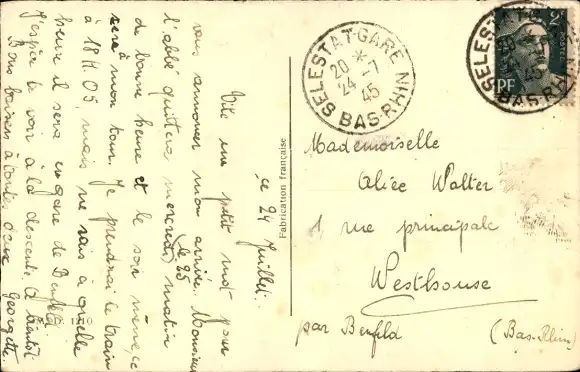 ce 24 Juillet.
Vite un petit mot pour
vous annoncer mon arrivée. Monsieur
l'abbé quittera mercredi (le 25) matin
de bonne heure et le soir même ce
sera à mon tour. Je prendrai le train
à 18 H. 05, mais ne sais à quelle
heure il sera en gare de Benfeld
J'espère te voir à la descente. A bientôt
Bons baisers à toutes deux
Georgette.
Fabrication Française
SELESTAT-GARE
20 *
24 -7
45
BAS-RHIN
2F
RF
SELESTAT-GARE
20 *
45
BAS-RHIN
Mademoiselle
Alice Walter
1 rue principale
Westhouse
par Benfeld
(Bas-Rhin)